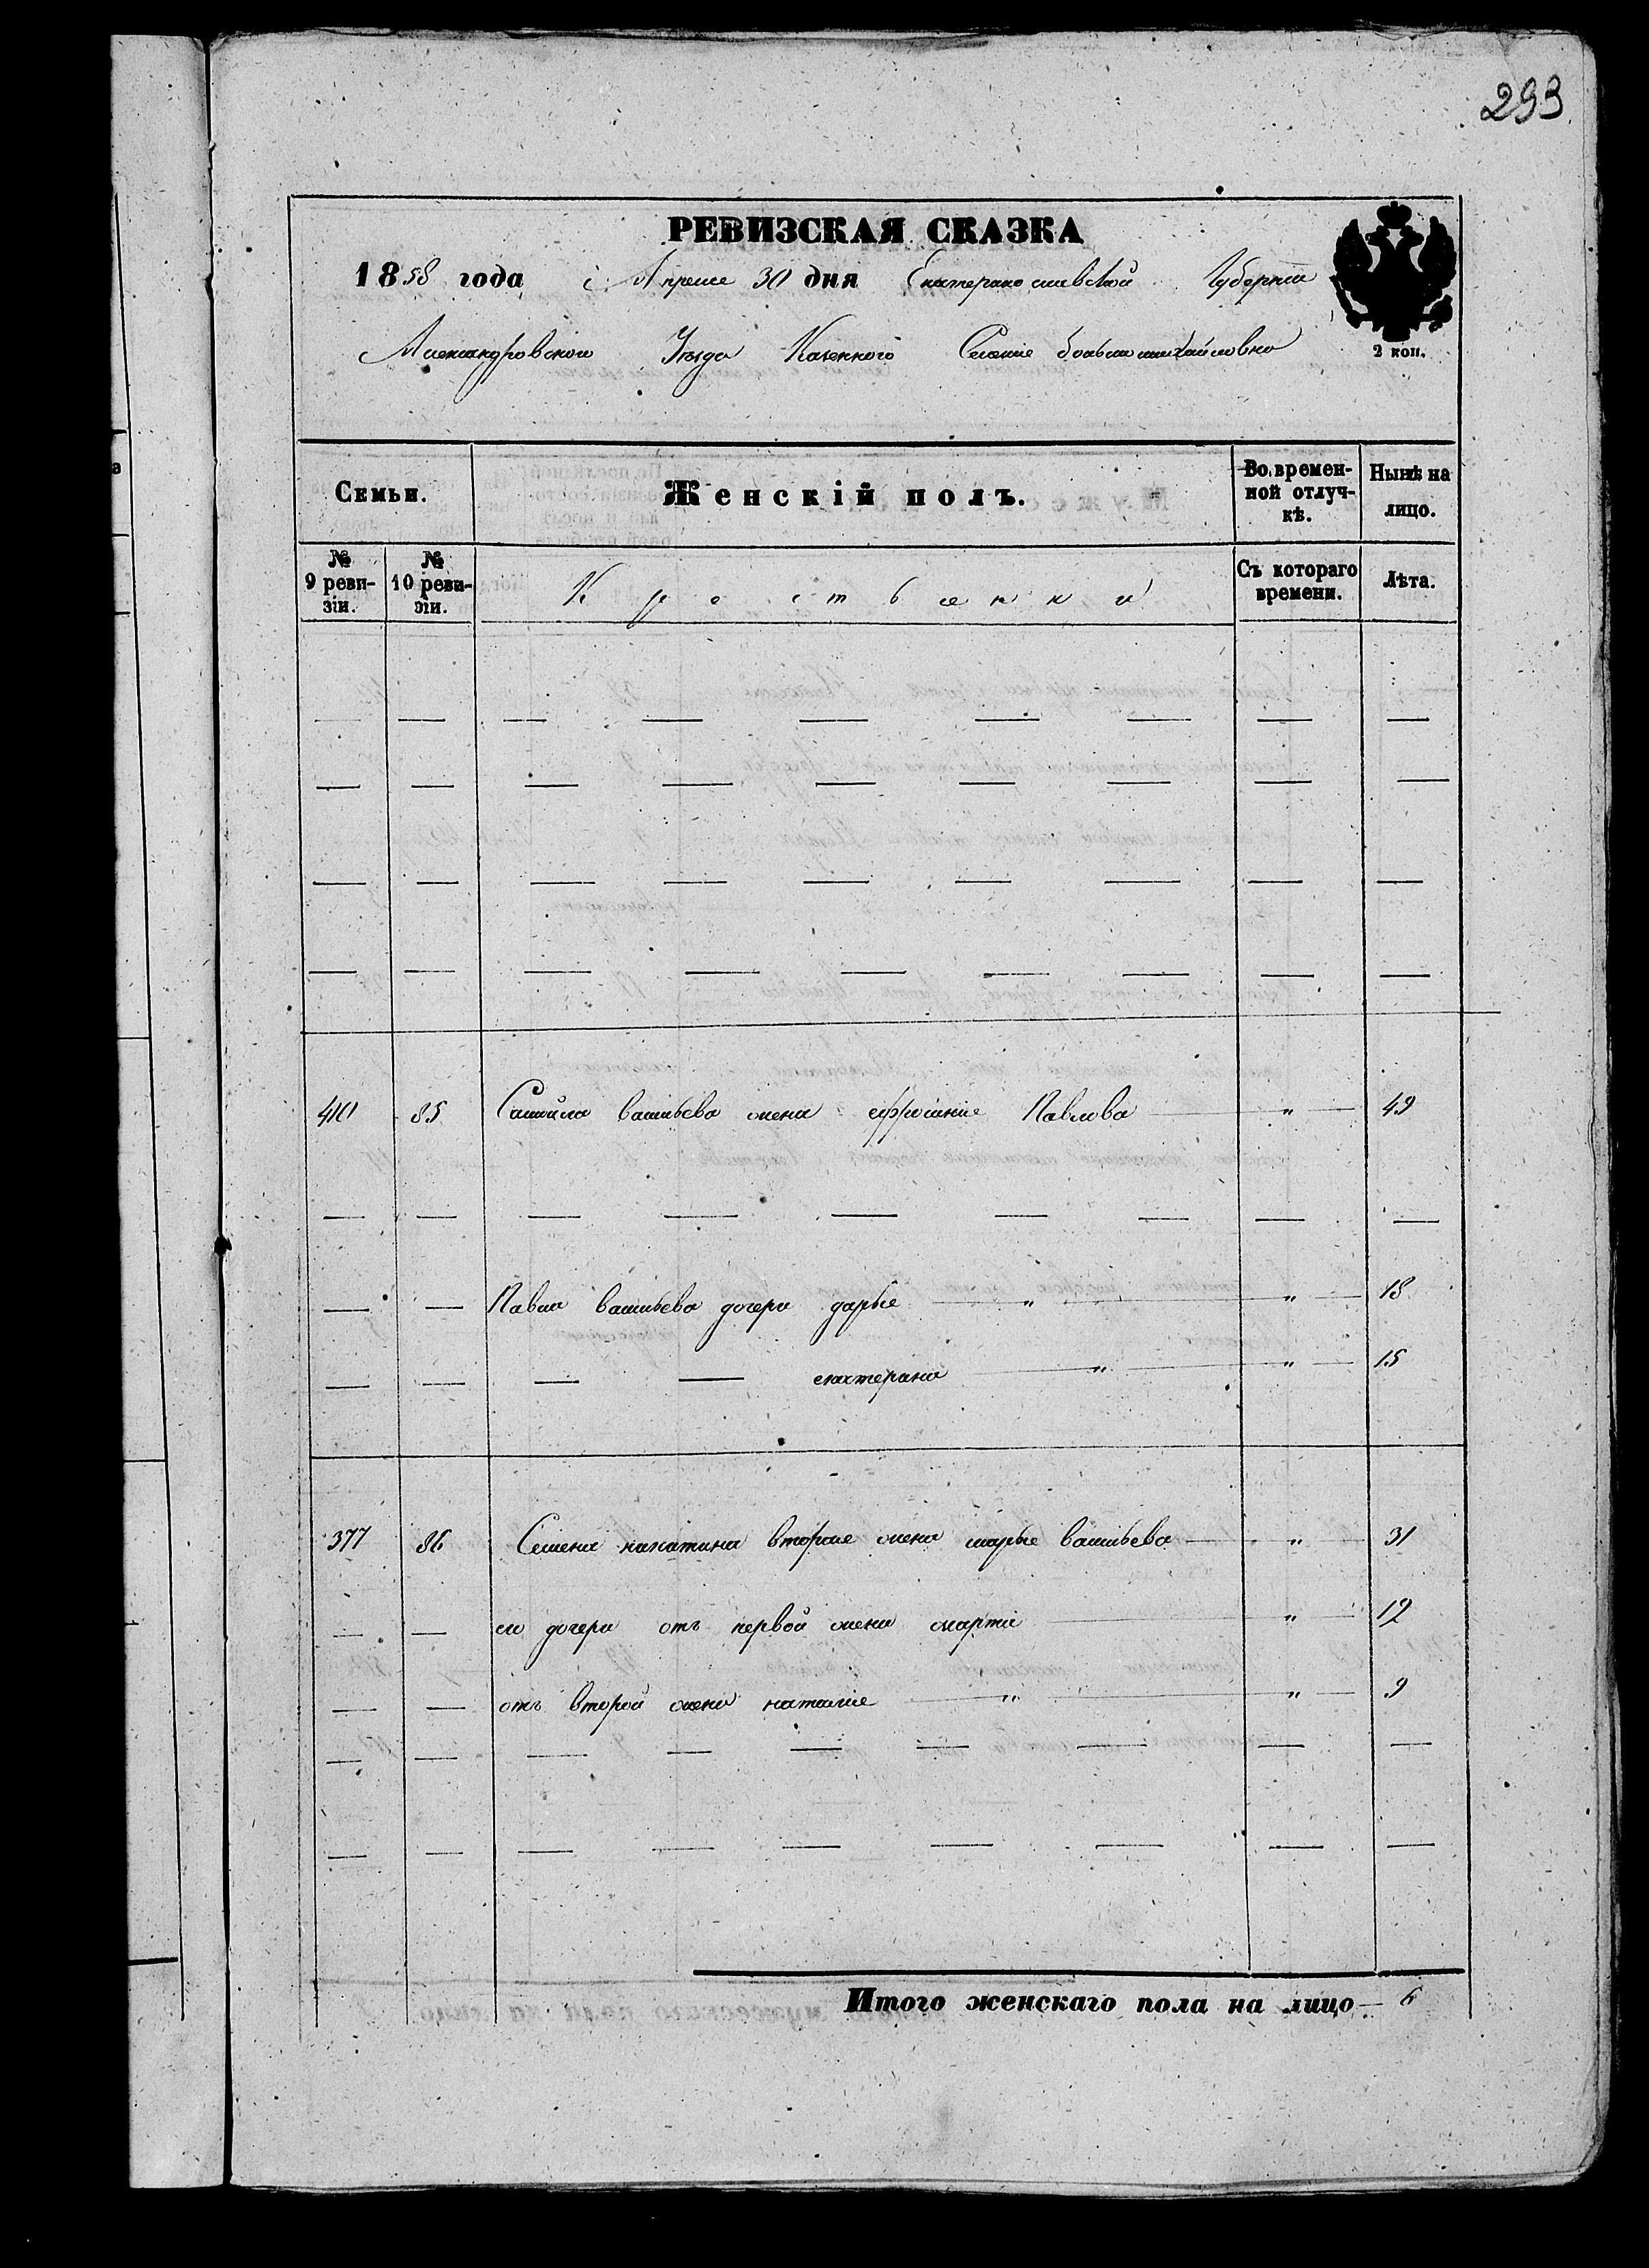 293
РЕВИЗСКАЯ СКАЗКА
1858 года Апреле 30 дня Екатеринославской Губернии
Александровского Уезда Казенного Селение большемихайловко
2 коп.
Семьи. Женскій полъ. Во временной отлучкѣ. Нынѣ на лицо.
№ 9 ревизіи. № 10 ревизіи. Съ котораго времени. Лѣта.
410 85 Самойла васильева жена ефросиние Павлова " 49
— — Павла васильева дочери дарье " " 18
— — — — екатерина " " 15
377 86 Семена никитина вторие жена марье васильева " 31
— — его дочери отъ первой жени марти " 12
— — отъ второй жени наталие " " 9
Итого женскаго пола на лицо — 6